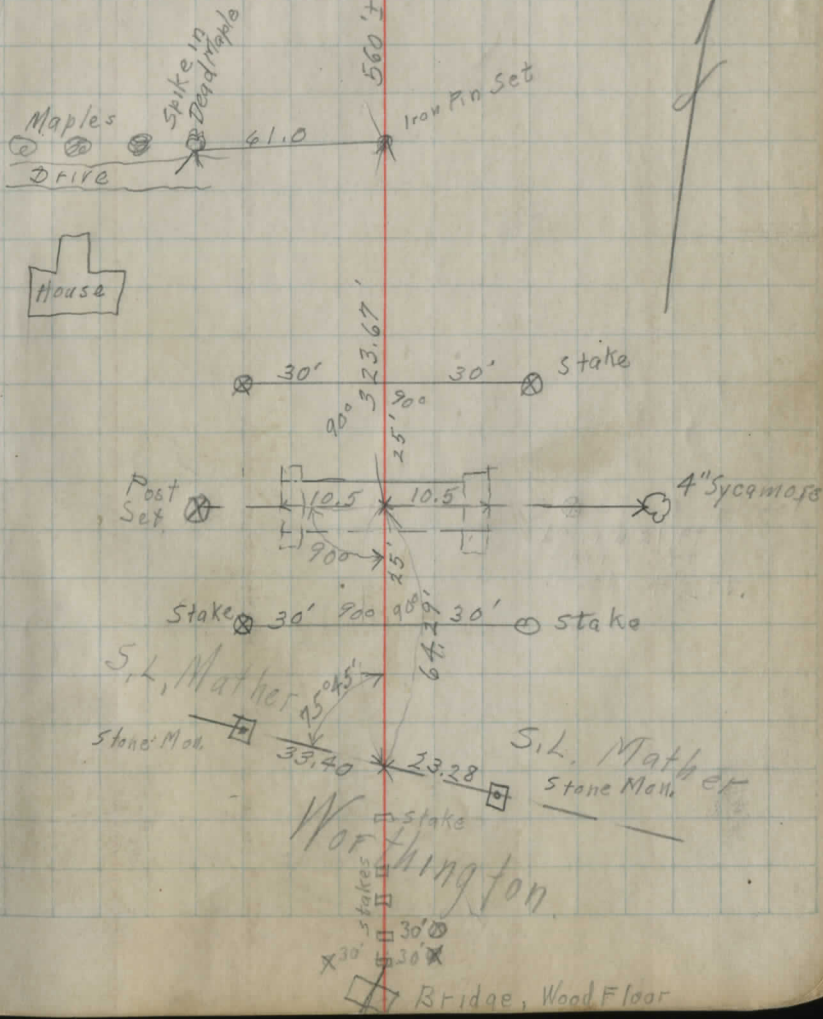 560'±
Spike in
Dead Maple
Iron Pin Set
Maples
61.0
Drive
House
323.67'
30' 30' Stake
90° 90°
25'
Post
Set
10.5 10.5
4" Sycamore
90°
25'
Stake 30' 90° 90° 30' Stake
64.29'
S.L. Mather
75°45'
Stone Mon.
33.40 23.28
S.L. Mather
Stone Mon.
Stake
Worthington
Stakes
30'
30' 30'
Bridge, Wood Floor